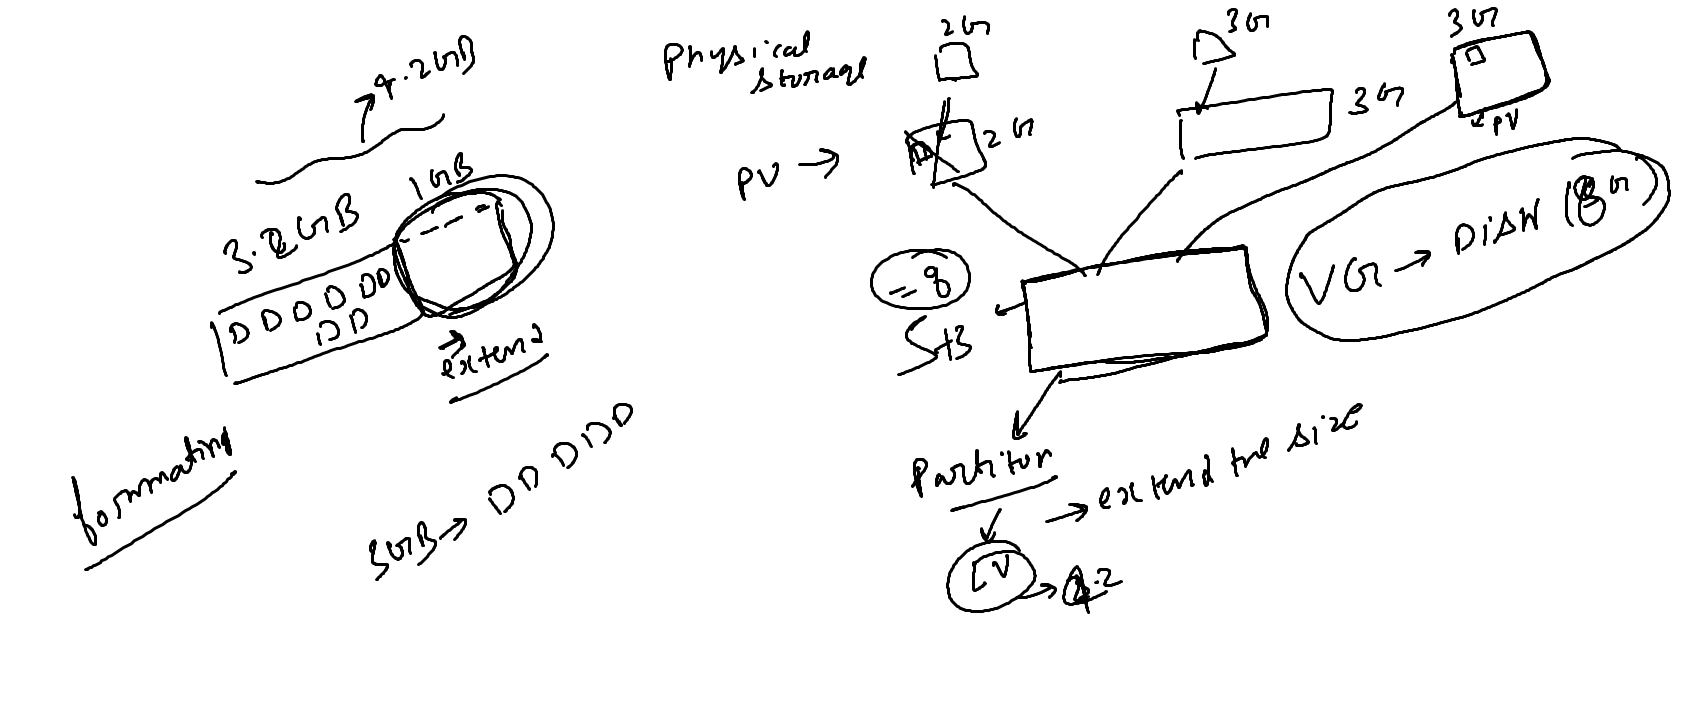 4.2GB
1GB
3.2GB
D D D D DD
DD
extend
formmating
3GB → DD DDD
Physical
storage
2G
3G
3G
PV →
2G
3G
PV
VG → DISK (8G)
= 8
5+3
Partiton
→ extend the size
LV
→ 4.2